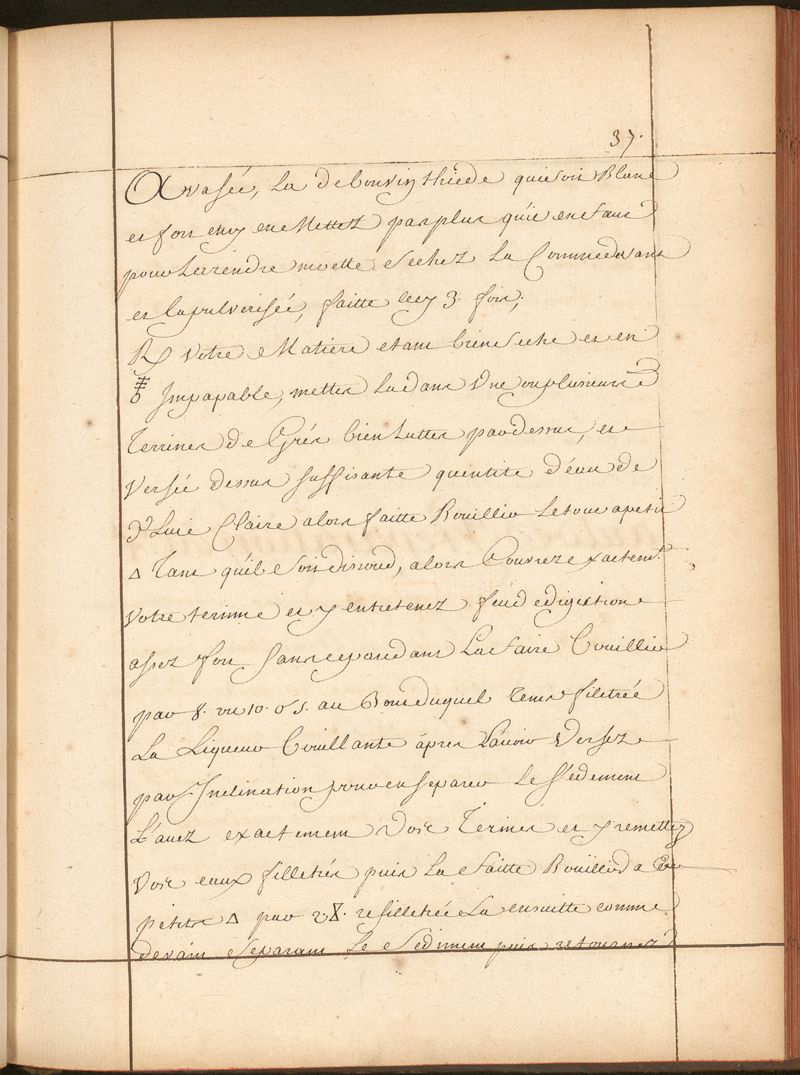 37.
Arasée, la de bon vin thiede quie soit Blanc
et fort enny en Mettez pas plus qu'ie en faut
pour la rendre moette, sechez la Comme devant
et la pulverisée, faitte cecy 3. fois;
R Votre Matiere etant bien seche et en
Impapable, mettes la dans Une ou plusieurs
Terrines de Grés bien Luttes par dessus, et
Versée dessus suffisante quentite d'eau de
Pluie Claire alors faitte Bouillir le tout a petit
△ Tant qu'il e soit dissoud, alors Couvrez exactem.t
Votre terinne et y entretenez feu d edigestion
assez fort sans cependant La faire Bouillir
par 8. ou 10. o s. au Bout duquel Tems filetrée
La Liqueur Bouillante ápres L'avoir Versez
par Inclination pour en separer le sédement
L'avez exactement Vos Terines et y remettez
Vos eaux filletrés puis La faitte Bouillir a
petits △ par 28. refilletrée La ensuitte comme
devant separant Le sediment puis retournez